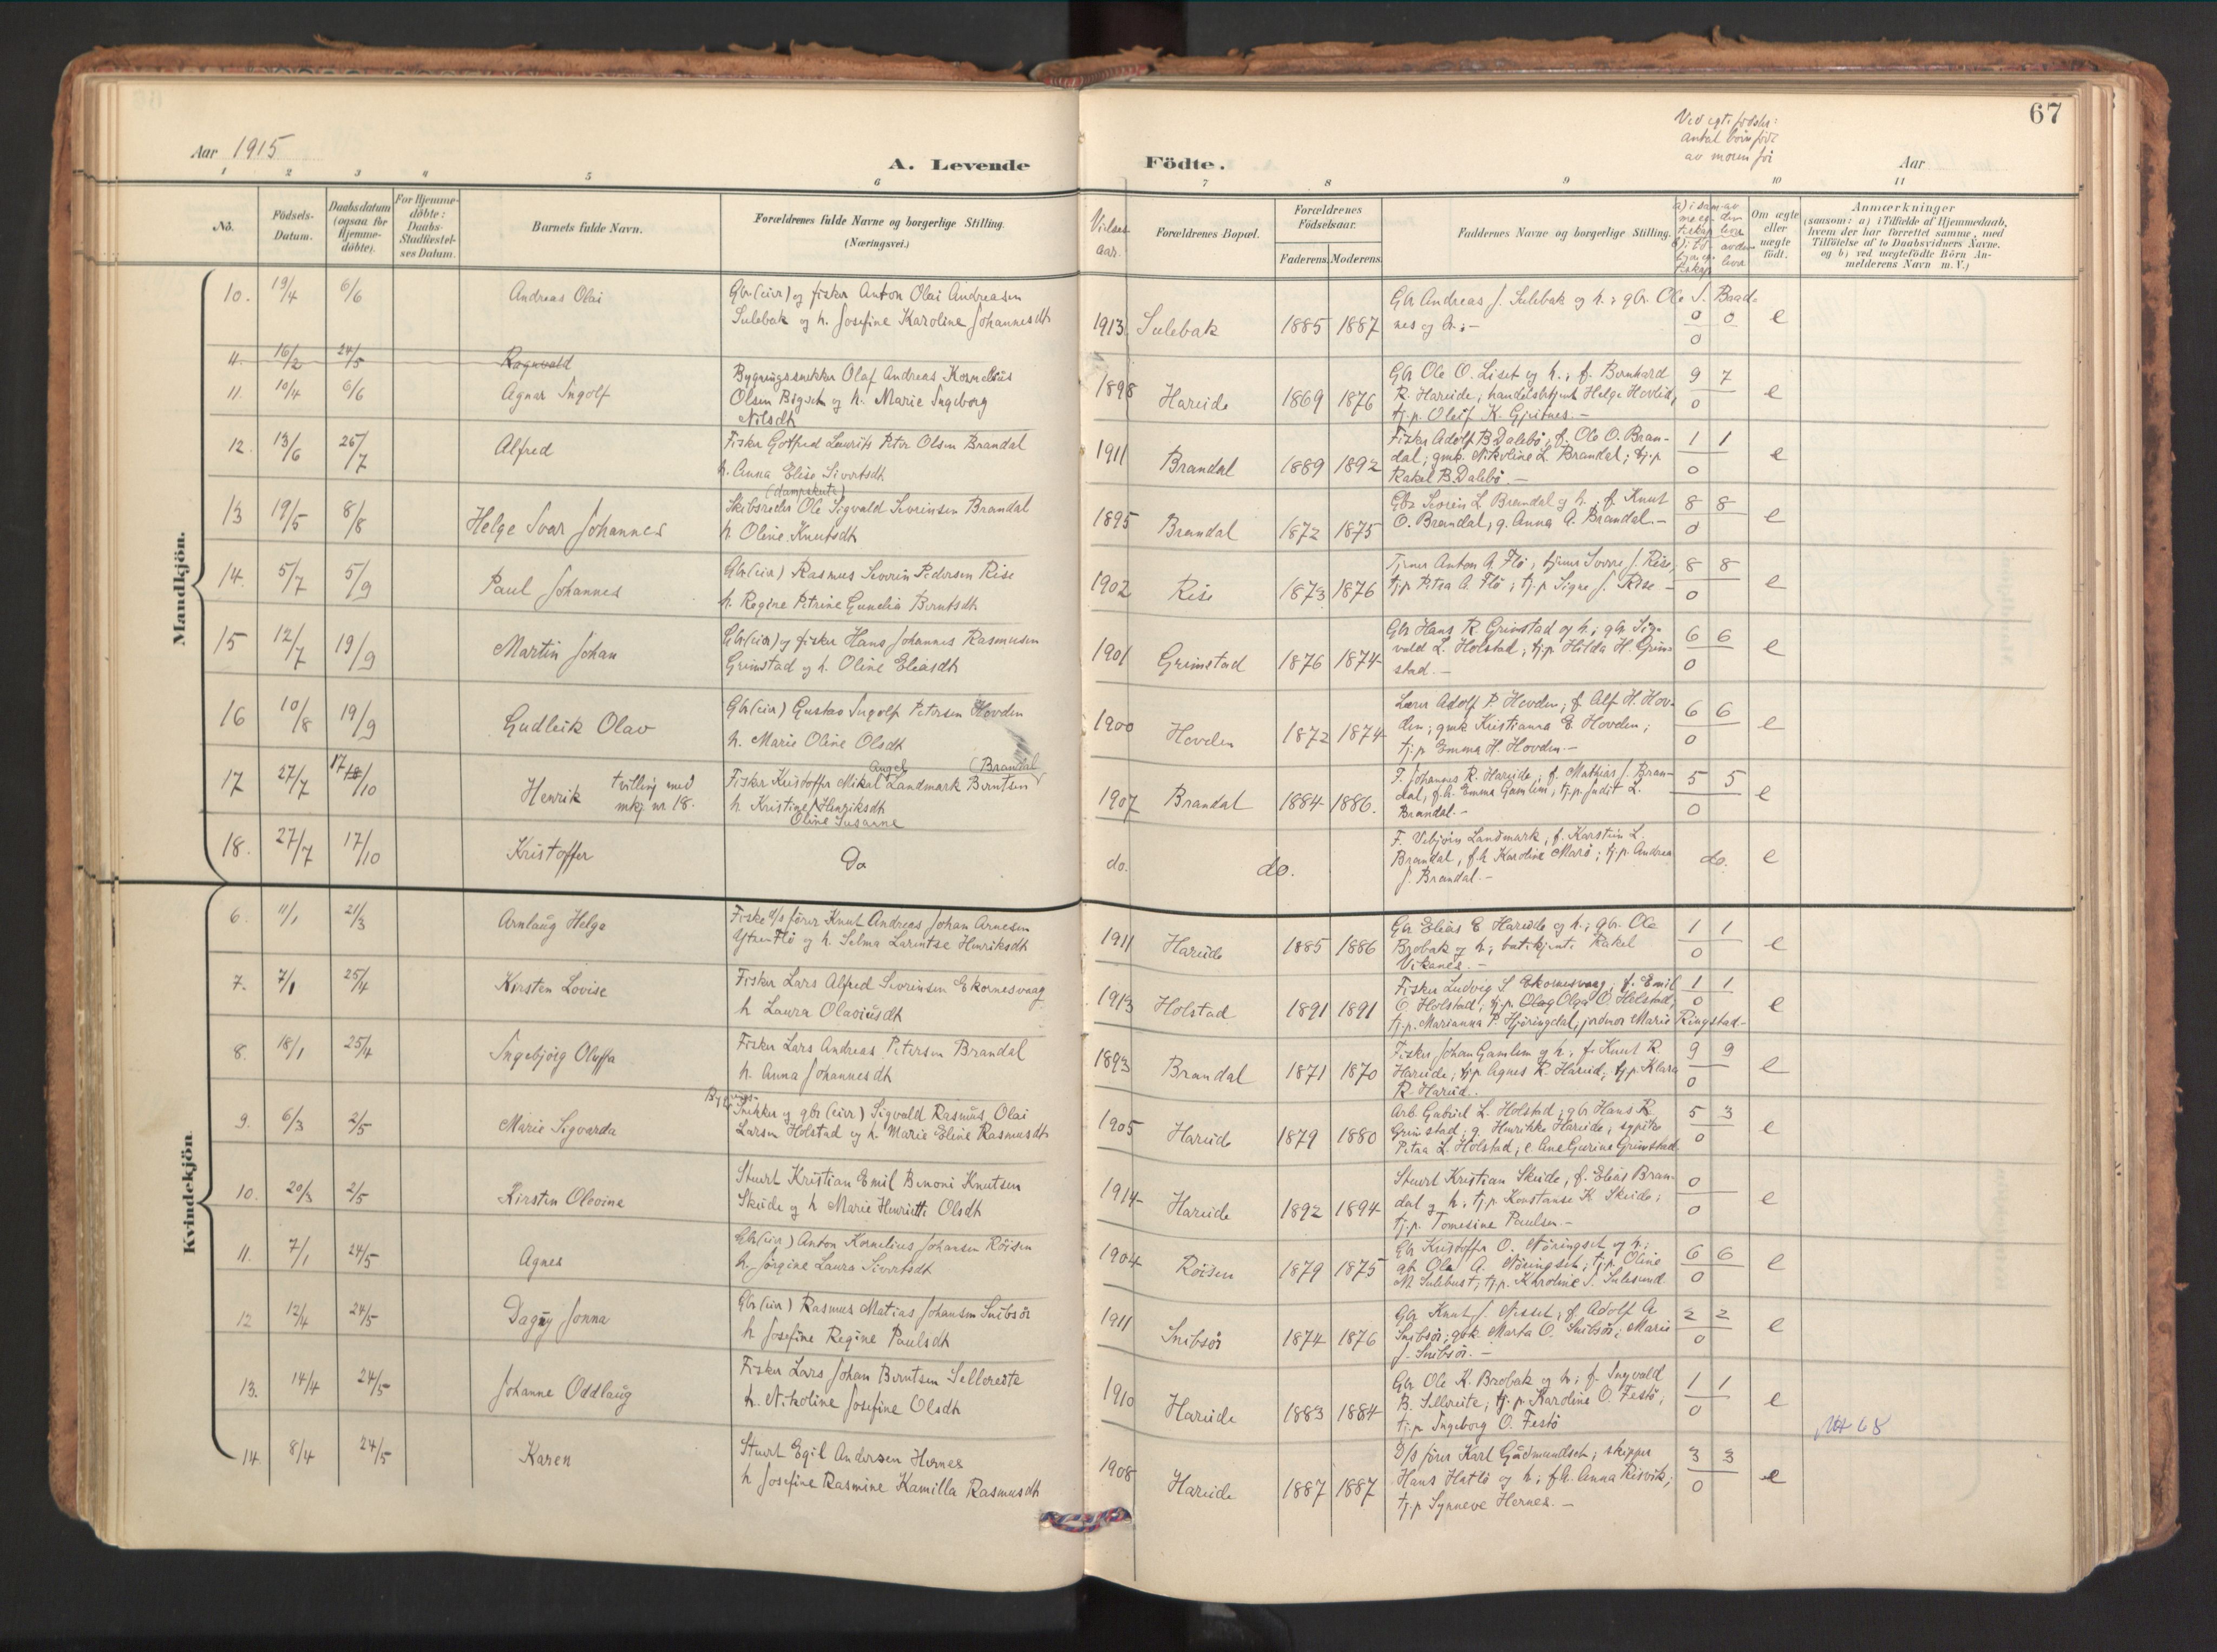 67
Aar 1915
A. Levende Födte.
Aar
Ved egte fødsler:
antal
av moren før
1 2 3 4 5 6 7 8 9 10 11
Nö.
Födsels-Datum.
Daabsdatum (ogsaa for Hjemme-döbte).
For Hjemme-döbte: Daabs-Stadfæstel-ses Datum.
Barnets fulde Navn.
Forældrenes fulde Navne og borgerlige Stilling.
(Næringsvei.)
Vielses aar.
Forældrenes Bopæl.
Forældrenes Födselsaar.
Faderens. Moderens.
Faddernes Navne og borgerlige Stilling.
Om ægte eller uægte födt.
Anmærkninger
(saasom: a) i Tilfælde af Hjemmedaab, hvem der har forrettet samme, med Tilföielse af to Daabsvidners Navne. og b) ved uægtefödte Börn An-melderens Navn m. V.)
Mandkjön.
10. 19/4 6/6 Andreas Olai
Gbr (eier) og fisker Anton Olai Andreasen
Sulebak og h. Josefine Karoline Johannesdt
1913 Sulebak 1885 1887
Gbr Andreas J. Sulebak og h.; gbr. Ole S. Brad-
nes og h.; -
0 0 e
0
11. 16/2 24/5 Ragnvald
11. 10/4 6/6 Agnar Ingolf
Bygningssnekker Olaf Andreas Kornelius
Olsen Bigset og h. Marie Ingeborg
Nilsdt
1898 Hareide 1869 1876
Gbr Ole O. Liset og h.; f. Bernhard
R. Hareide; handelsbetjent Helge Hovlid;
tj.p. Oleif K. Gjeitnes. -
9 7 e
0
12. 13/6 25/7 Alfred
Fisker Gotfred Laurits Peter Olsen Brandal
h. Anna Elise Sivertsdt
1911 Brandal 1889 1892
Fisker Adolf B. Dalebö; f. Ole O. Bran-
dal; gmk. Nikoline L. Brandal; tj.p
Rakel B. Dalebö. -
1 1 e
0
13 19/5 8/8 Helge Ivar Johannes
(dampskute)
Skibsreder Ole Sigvald Severinsen Brandal
h. Oline Knutsdt
1895 Brandal 1872 1875
Gbr Severin L. Brandal og h.; f. Knut
O. Brandal; g. Anna A. Brandal. -
8 8 e
0
14. 5/7 5/9 Paul Johannes
Gbr (eier) Rasmus Severin Pedersen Rise
h. Regine Petrine Gunelia Berntsdt
1902 Rise 1873 1876
Tjener Anton A. Flö; tjener Sverre J. Rise,
tj.p Petra A. Flö; tj.p Signe J. Rise -
8 8 e
0
15 12/7 19/9 Martin Johan
Gbr (eier) og fisker Hans Johannes Rasmusen
Grimstad og h. Oline Eliasdt
1901 Grimstad 1876 1874
Gbr Hans R. Grimstad og h.; gbr. Sig-
vald L. Holstad; tj.p Hilda H. Grim-
stad. -
6 6 e
0
16 10/8 19/9 Gudleik Olav
Gbr (eier) Gustav Ingolf Petersen Hovden
h. Marie Oline Olsdt
1900 Hovden 1872 1874
Lærer Adolf P. Hovden; f. Alf H. Hov-
den; gmk Kristianna E. Hovden;
tj.p Emma H. Hovden. -
6 6 e
0
17 27/7 17/10 Henrik tvilling med mkj nr 18.
Angel (Brandal
Fisker Kristoffer Mikal Landmark Berntsen
h Kristine Henriksdt
Oline Susanne
1907 Brandal 1884 1886.
F. Johannes R. Hareide; f. Mathias J. Bran-
dal, f.h. Emma Gamlem; tj.p. Judit L.
Brandal. -
5 5 e
0
18. 27/7 17/10 Kristoffer Do
do. do.
F. Vebjörn Landmark; f. Karstein L.
Brandal, f.h Karoline Marö; tj.p. Andrea
J. Brandal. -
do. e
Kvindekjön.
6. 11/1 21/3 Arnlaug Helga
Fiske d/s förer Knut Andreas Johan Arnesen
Ytre-Flö og h. Selma Larentse Henriksdt
1911 Hareide 1885 1886
Gbr Elias E Hareide og h.; gbr. Ole
Brobak og h; butikjent. Rakel
Vikanes. -
1 1 e
0
7. 7/1 25/4 Kirsten Lovise
Fisker Lars Alfred Severinsen Ekornesvaag
h Laura Olaviusdt
1913 Holstad 1891 1891
Fisker Ludvig S. Ekornesvaag; f. Emil
O Holstad; tj.p. Olag Olga O Holstad,
tj.p. Marianna P. Hjöringdal; jordmor Marie Ringstad. -
1 1 e
0
8. 18/1 25/4 Ingebjörg Oluffa
Fisker Lars Andreas Petersen Brandal
h. Anna Johannesdt
1893 Brandal 1871 1870
Fisker Johan Gamlem og h.; f. Knut R.
Hareide; tj.p Agnes R. Hareid; tj.p. Klara
R. Hareid..
9 9 e
0
9. 6/3 2/5 Marie Sigvarda
Bygnings-
Snikker og gbr (eier) Sigvald Rasmus Olai
Larsen Holstad og h. Marie Eline Rasmusdt
1905 Hareide 1879 1880
Arb. Gabriel L. Holstad; gbr Hans R.
Grimstad; g. Henrikke Hareide; sypike
Petra L. Holstad; e. Ane Gurine Grimstad.
5 3 e
0
10. 20/3 2/5 Kirsten Olevine
Stuert Kristian Emil Benoni Knutsen
Skeide og h Marie Henriette Olsdt
1914 Hareide 1892 1894
Stuert Kristian Skeide, f. Elias Bran-
dal og h; tj.p Konstanse K. Skeide;
tj.p. Tomesine Paulsen. -
0 e
0
11. 7/1 24/5 Agnes
Gbr (eier) Anton Kornelius Johansen Röisen
h. Jörgine Laura Sivertsdt
1904 Röisen 1879 1875
Gbr Kristoffer O. Nöringset og h.;
gbr Ole A. Nöringset; tj.p. Oline
M Sulebust; tj.p. Karoline S. Sulesund.
6 6 e
0
12 12/4 24/5 Dagny Jonna
Gbr (eier) Rasmus Matias Johansen Snibsör
h Josefine Regine Paulsdt
1911 Snibsör 1874 1876
Gbr Knut J. Nesset; f. Adolf A.
Snibsör; gbk. Marta O. Snibsör; Marie
J. Snibsör. -
2 2 e
0
13. 14/4 24/5 Johanne Oddlaug
Fisker Lars Johan Berntsen Sellereite
h. Nikoline Josefine Olsdt
1910 Hareide 1883 1884
Gbr Ole K. Brobak og h; f. Ingvald
B. Sellereite; tj.p Karoline O. Festö;
tj.p Ingeborg O. Festö
1 1 e
0
14 8/4 24/5 Karen
Stuert Egil Andersen Hernes
h Josefine Rasmine Kamilla Rasmusdt
1908 Hareide 1887 1887
D/s förer Karl Gudmundset; skipper
Hans Hatlö og h; f.h. Anna Risvik;
tj.p Synneve Hernes. -
3 3 e
0
68